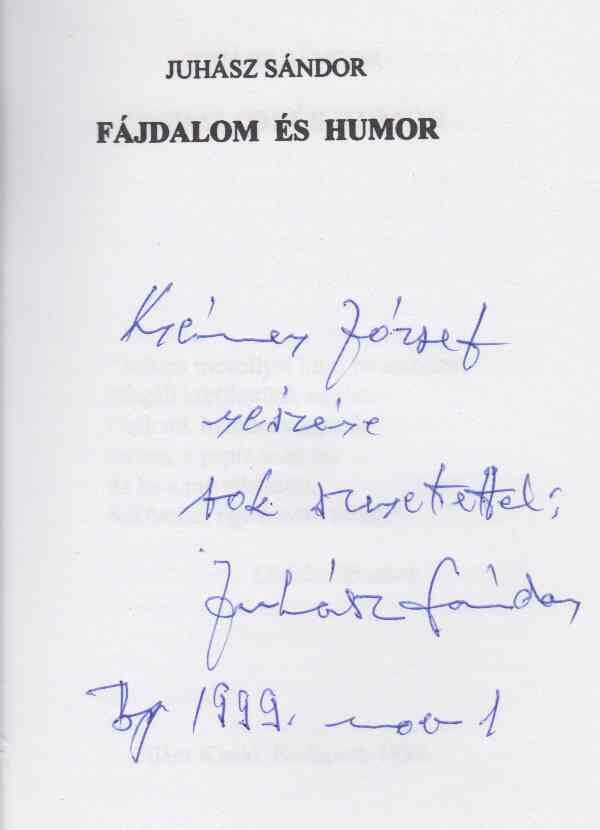 JUHÁSZ SÁNDOR
FÁJDALOM ÉS HUMOR
József
részére
sok szeretettel:
Juhász Sándor
Bp 1999. nov 1